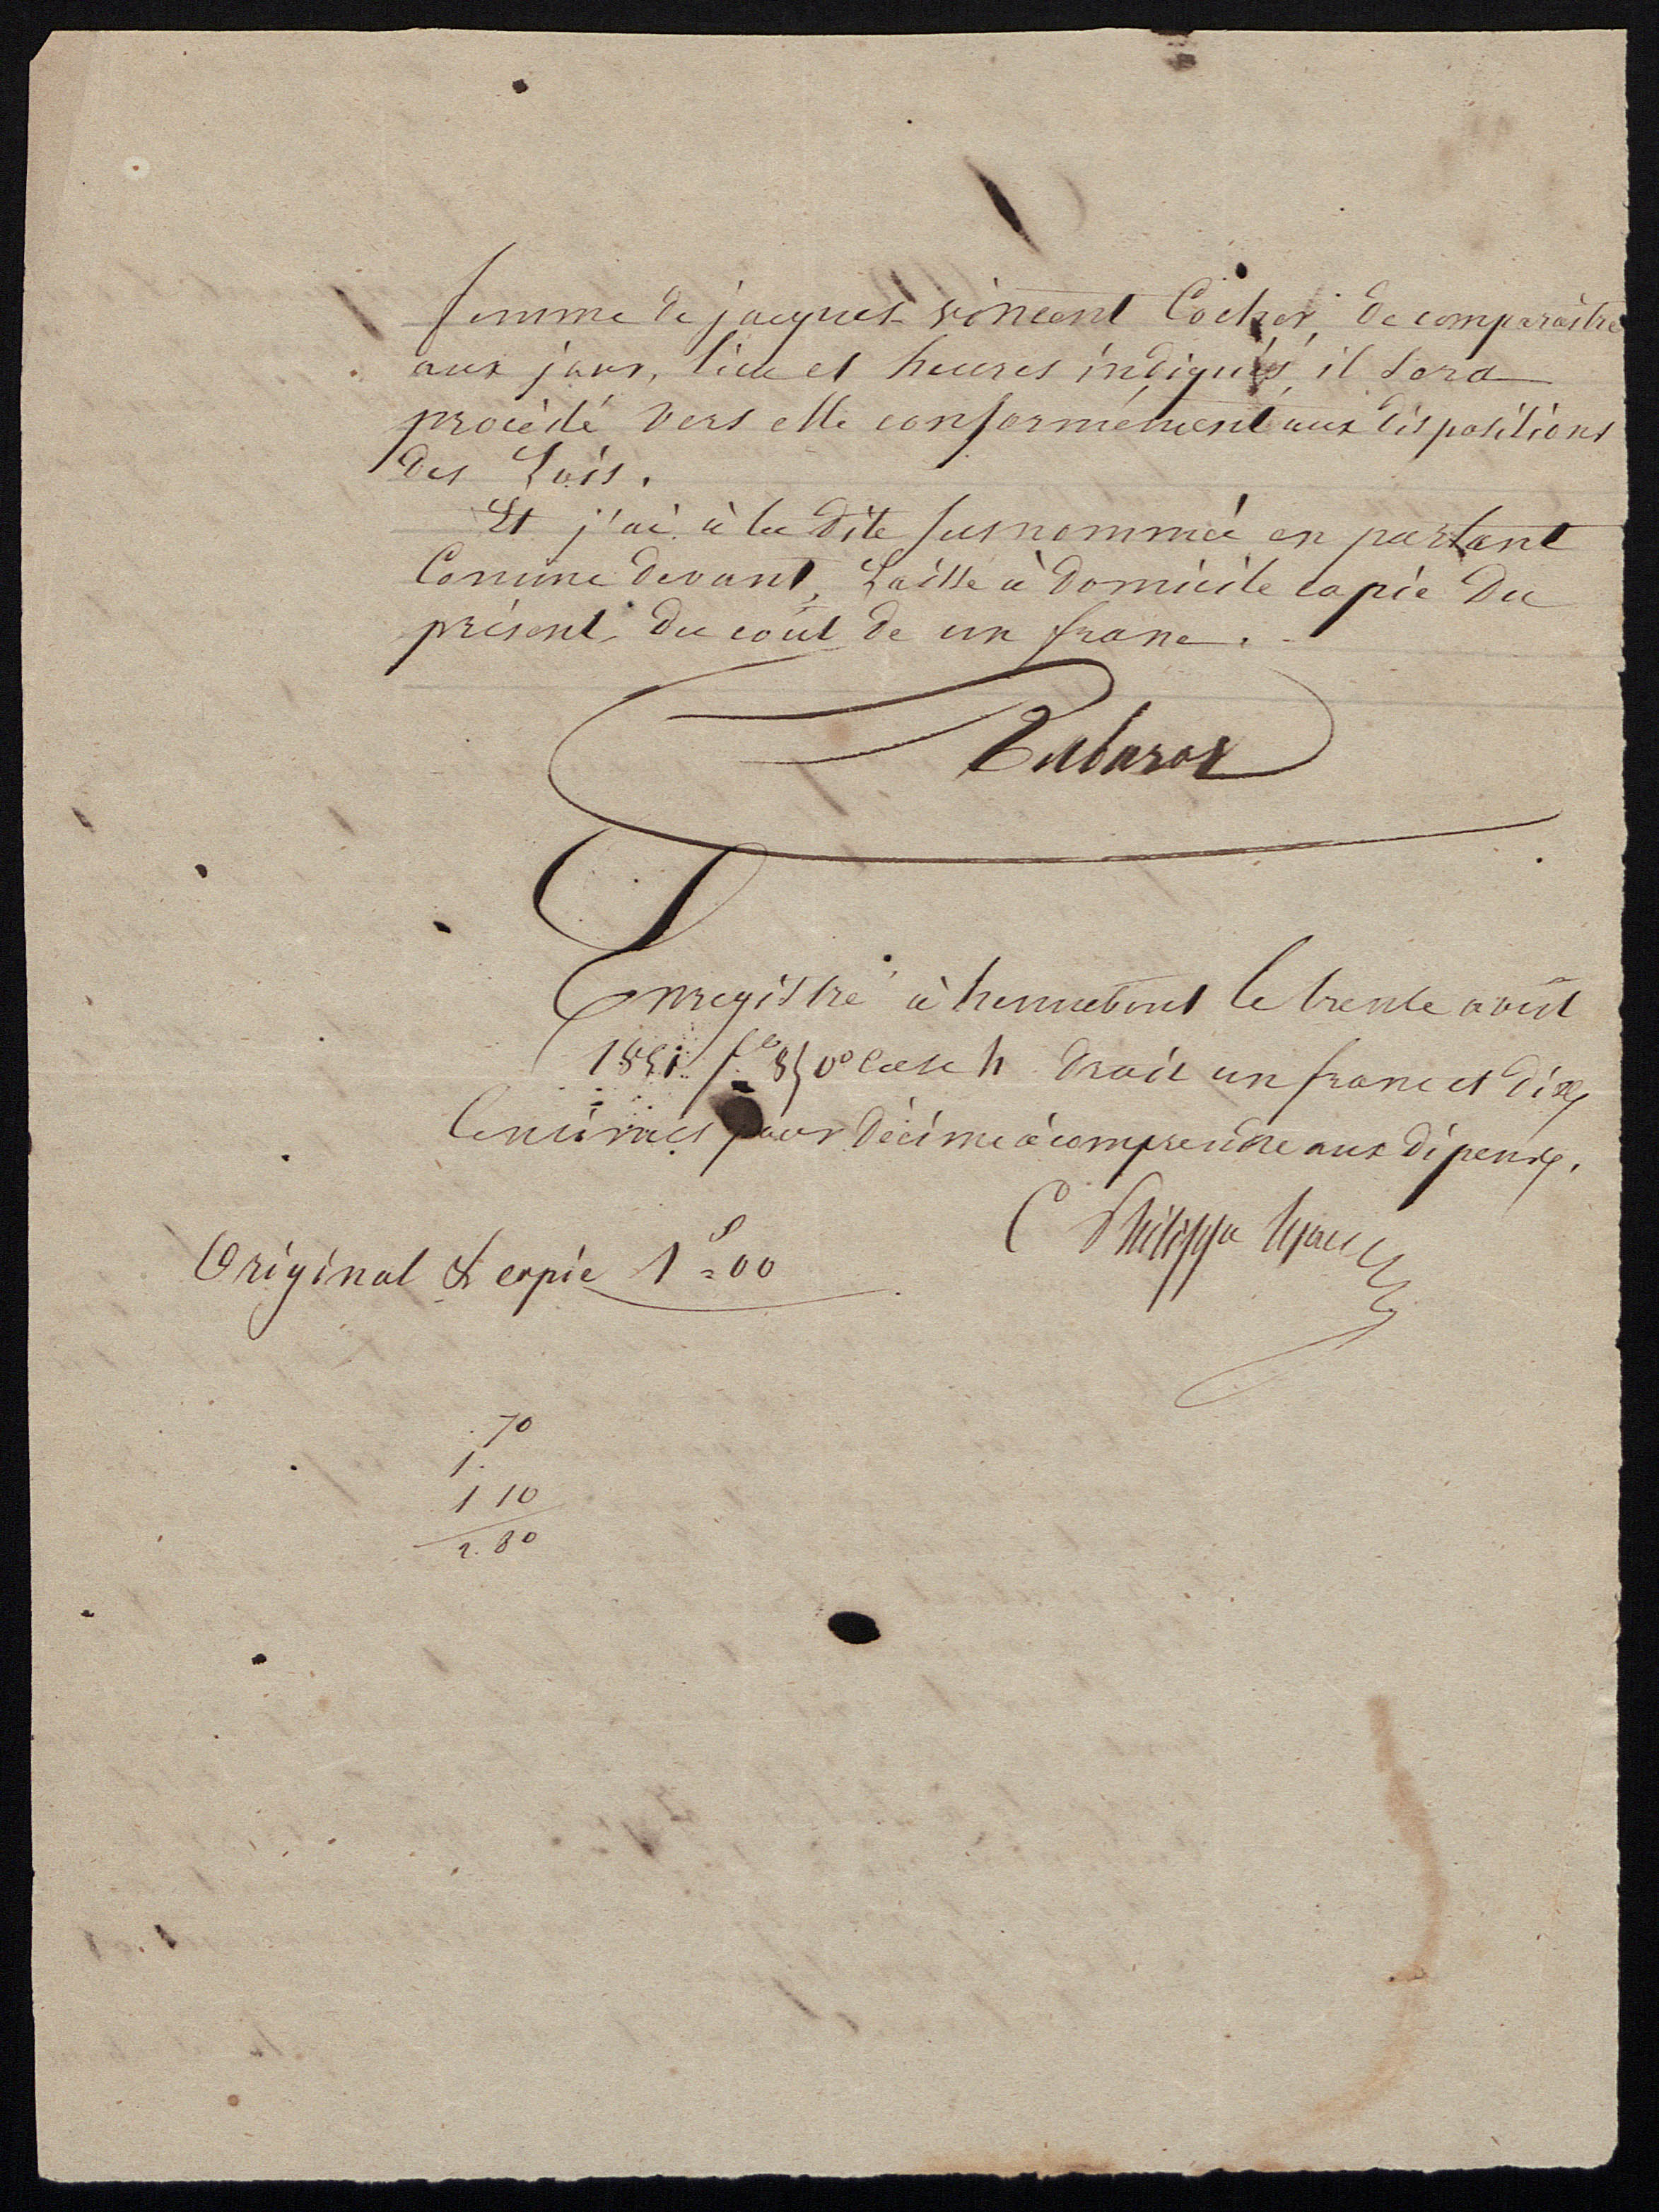 femme de jacques vincent Cocher, de comparaître
aux jour, lieu et heures indiqués, il sera
procédé vers elle conformément aux dispositions
des Lois.
Et j'ai à la dite susnommée en parlant
Comme devant, Laissé à domicile copie du
présent, du coût de un franc.
Enregistré à hennebont le trente août
1851 f° 85 v° Case h droit un franc et dix
Centimes pour décime à comprendre aux dépens.
C Philippe
Original & copie 1 f 00
.70
1.
1 10
2.80